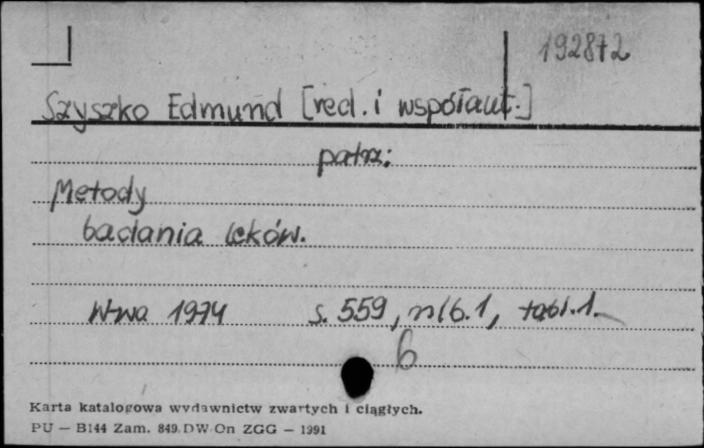 192872
Szyszko Edmund [red. i współaut.]
patrz:
Metody
badania leków.
W-wa 1974 s. 559, nlb. 1, tabl. 1.
b
Karta katalogowa wydawnictw zwartych i ciągłych.
PU — B144 Zam. 849. DW On ZGG — 1991